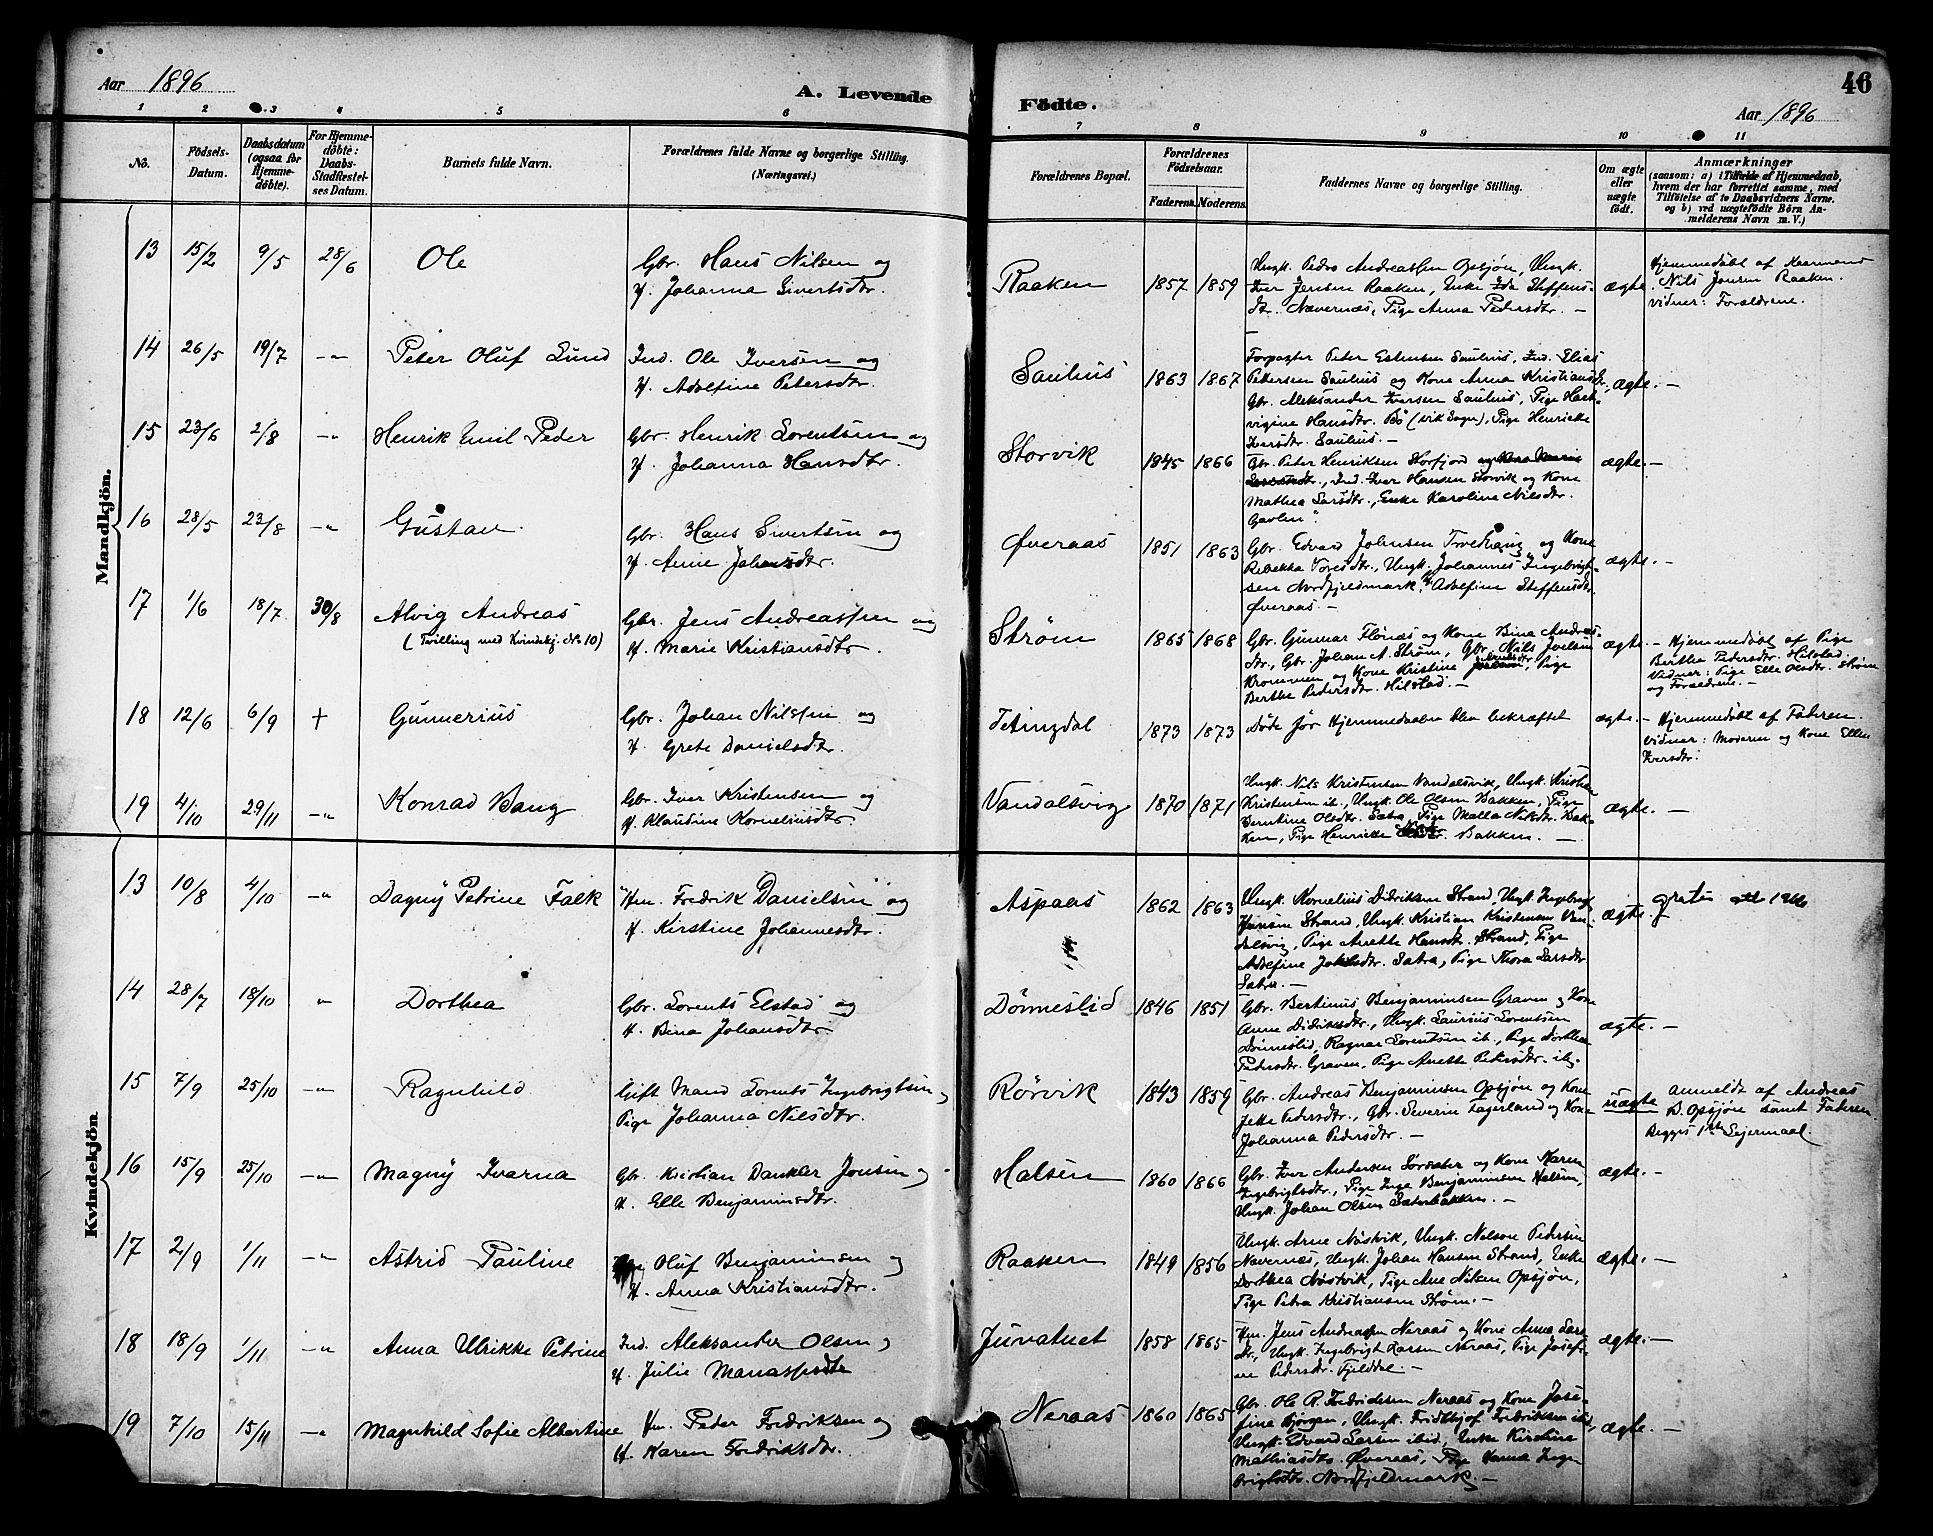 Aar 1896
A. Levende
Födte.
Aar 1896
46
1 2 3 4 5 6 7 8 9 10 11
No.
Födsels-
Datum.
Daabsdatum
(ogsaa för
Hjemme-
döbte).
For Hjemme-
döbte:
Daabs-
Stadfæstel-
ses Datum.
Barnets fulde Navn.
Forældrenes fulde Navne og borgerlige Stilling.
(Næringsvei.)
Forældrenes Bopæl.
Forældrenes
Födselsaar.
Faderens. Moderens.
Faddernes Navne og borgerlige Stilling.
Om ægte
eller
uægte
födt.
Anmærkninger
(saasom: a) i Tilfælde af Hjemmedaab,
hvem der har forrettet samme, med
Tilföielse af to Daabsvidners Navne.
og b) ved uægtefödte Börn An-
melderens Navn m. V.)
Mandkjön.
13 15/2 9/5 28/6 Ole
Gbr. Hans Nilsen og
H. Johanna Sivertsdtr.
Raaken 1857 1859
Ungk. Pedro Andreassen Opsjøn, Ungk.
Iver Jensen Raaken, Enke Ida Steffens-
dtr. Nævernæs, Pige Anna Pedersdtr. –
ægte
Hjemmedøbt af
Nils Jensen Raaken.
Vidner: Forældrene.
14 26/5 19/7 –„– Peter Oluf Lund
Ind. Ole Iversen og
H. Adolfine Petersdtr.
Saulhus 1863 1867
Forpagter Peter Estensen Saulhus, Ind. Elias
Pettersen Saulhus og Kone Anna Kristiansdtr.,
Gbr. Aleksander Iversen Saulhus, Pige Hart-
vigine Hansdtr. Bö (Vik Sogn), Pige Henrikke
Iversdtr. Saulhus. –
ægte. –
15 23/6 2/8 –„– Henrik Emil Peder
Gbr. Henrik Lorentsen og
H. Johanna Hansdtr.
Storvik 1845 1866
Gbr. Peter Henriksen Storfjord
Ind. Iver Hansen Storvik og Kone
Mathea Larsdtr., Enke Karoline Nilsdtr.
ægte. –
16 28/5 23/8 –„– Gustav.
Gbr. Hans Sivertsen og
H. Anne Johansdtr.
Øveraas 1851 1863
Gbr. Edvard Johnsen og Kone
Rebekka Toresdtr., Ungk. Johannes Ingebrigt-
sen Nordfjeldmark, Adolfine Steffensdtr.
Øveraas. –
ægte. –
17 1/6 18/7 30/8 Alvig Andreas
(Tvilling med Kvindekj. No 10)
Gbr. Jens Andreassen og
H. Marie Kristiansdtr.
Strøm 1865 1868
Gbr. Gunnar Flönæs og Kone Bina Andreas-
dtr., Gbr. Johan A. Strøm, Gbr. Nils Joelsen
Krommen og Kone Kristine Pige
Berthe Pedersdtr. Hilstad. –
ægte. –
Hjemmedøbt af Pige
Berthe Pedersdtr. Hilstad.
Vidner: Pige Elle Olsdtr. Strøm
og Forældrene. –
18 12/6 6/9 + Gunnerius
Gbr. Johan Nilssen og
H. Grete Danielsdtr.
Tetingdal 1873 1873
Döde för Hjemmedaaben blev bekræftet
ægte. –
Hjemmedøbt af Faderen.
Vidner: Moderen og Kone Ellen
Iversdtr.
19 4/10 29/11 –„– Konrad Bang
Gbr. Iver Kristensen og
H. Klaudine Korneliusdtr.
Vandalsvig 1870 1871
Ungk. Nils Kristensen Vandalsvik, Ungk. Kristian
Kristensen ib., Ungk. Ole Olsen Bakken, Pige
Berntine Olsdtr. Sætra, Pige Malla Nilsdtr. Bak-
ken, Pige Henrikke Bakken. –
ægte. –
Kvindekjön
13 10/8 4/10 –„– Dagny Petrine Falk
Hm. Fredrik Danielsen og
H. Kirstine Johannesdtr.
Aspaas 1862 1863
Ungk. Kornelius Didriksen Strand, Ungk. Ingebrigt
Hansen Strand, Ungk. Kristian Kristensen Van-
dalsvig, Pige Anette Hansdtr. Strand, Pige
Adolfine Sætra, Pige Thora Larsdtr.
Sætra. –
ægte.
14 28/7 18/10 „ Dorthea
Gbr. Lorents Elstad og
H. Bina Johansdtr.
Dönneslid 1846 1851
Gbr. Bertinus Benjaminsen Graven og Kone
Anne Didriksdtr., Ungk. Laurius Lorentsen
Dönneslid, Ragnar Lorentsen ib., Pige Dorthea
Pedersdtr. Graven, Pige Anette Pedersdtr. ib.
ægte. –
15 7/9 25/10 –„– Ragnhild
Gift Mand Lorents Ingebrigtsen og
Pige Johanna Nilsdtr.
Rörvik 1843 1859
Gbr. Andreas Benjaminsen Opsjøn og Kone
Jette Pedersdtr., Gbr. Severin Fagerland og Kone
Johanna Pedersdtr. –
uægte
Anmeldt af Andreas
B. Opsjøn samt Faderen
Begges 1ste Leiermaal.
16 15/9 25/10 –„– Magny Ivarna
Gbr. Kristian Dankler Jonsen og
H. Elle Benjaminsdtr.
Halsen 1860 1866
Gbr. Iver Andersen Sörsæter og Kone Maren
Ingebrigtsdtr., Pige Inga Benjaminsen Halsen,
Ungk. Johan Olsen Sæterbakken. –
ægte. –
17 2/9 1/11 –„ Astrid Pauline
Oluf Benjaminsen og
H. Anna Kristiansdtr.
Raaken 1849 1856
Ungk. Arne Nöstvik, Ungk. Nelson Pedersen
Nævernæs, Ungk. Johan Hansen Strand, Enke
Dorthea Nöstvik, Pige Ane Nilsen Opsjøn,
Pige Petra Kristiansen Strøm. –
ægte. –
18 18/9 1/11 –„ Anna Ulrikke Petrine
Ind. Aleksander Olsen og
H. Julie Manassesdtr
Jurvatnet 1858 1865
Hm. Jens Andreassen Neraas og Kone Anna Lars-
dtr., Ungk. Ingebrigt Larsen Neraas, Pige Josefi-
ne Pedersdtr. Fjelddal. –
ægte. –
19 7/10 15/11 „ Magnhild Sofie Albertine
Hm. Peder Fredriksen og
H. Maren Fredriksdtr.
Neraas 1860 1865
Gbr. Ole R. Fredriksen Neraas og Kone Jose-
fine Bjørgen, Ungk. Fridthjof Fredriksen ibid,
Ungk. Edvard Larsen ibid. Enke Kirstine
Mathiasdtr. Øveraas, Pige Hanna Inge-
brigtsdtr. Nordfjeldmark. –
ægte. –